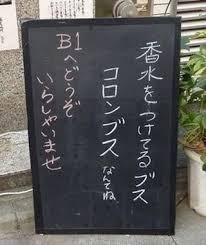 香水をつけてるブス
コロンブス なんてね
B1へどうぞ
いらしゃいませ